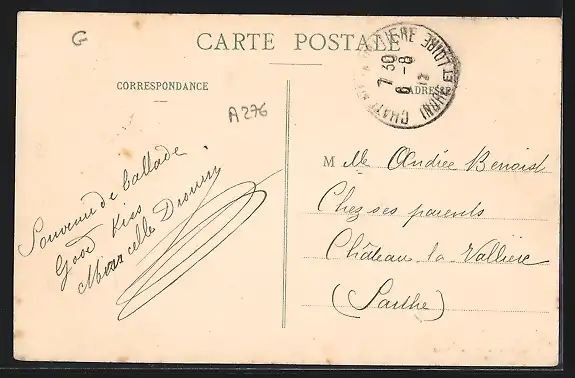 G
CARTE POSTALE
CORRESPONDANCE
ADRESSE
A276
Souvenir de ballade
Good Kiss
Marcelle Drouin
7 30
6 - 8
12
INDRE ET LOIRE
M lle Andrée Benoist
Chez ses parents
Château la Vallière
(Sarthe)